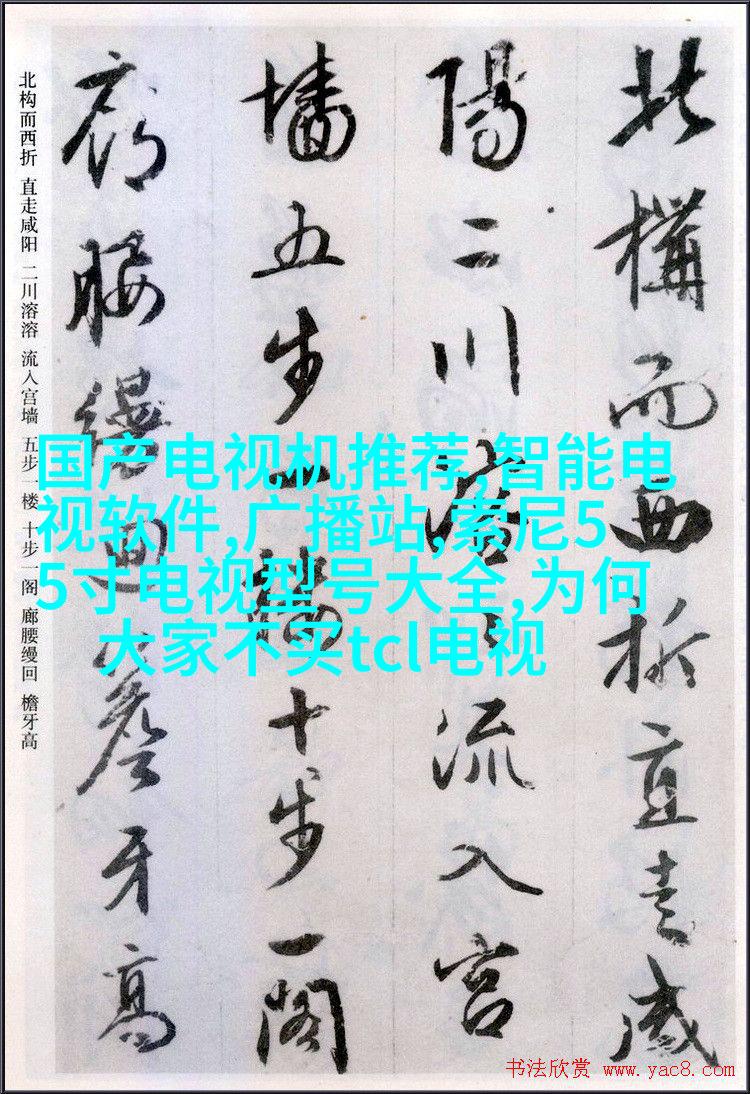 北構而西折直走咸
陽二川溶々流入宮
墻五步一樓十步一閣
廊腰縵迴簷牙高
北构而西折 直走咸阳 二川溶溶 流入宫墙 五步一楼 十步一阁 廊腰缦回 檐牙高
国产电视机推荐,智能电
视软件,广播站,索尼5
5寸电视型号大全,为何
大家不买tcl电视
书法欣赏 www.yac8.com